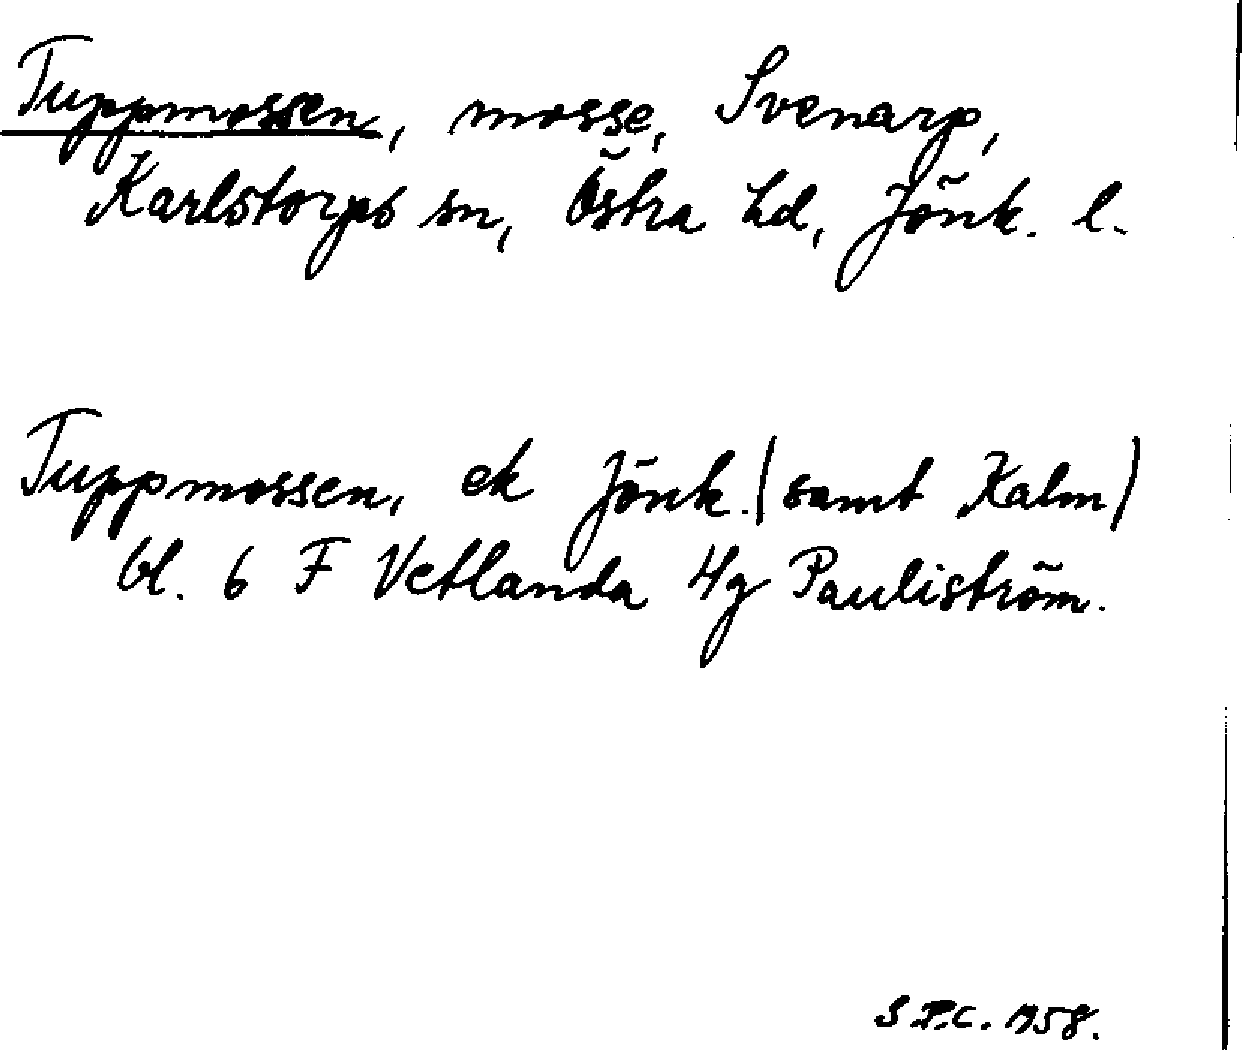 Tuppmossen, mosse, Svenarp,
Karlstorps sn, Östra hd, Jönk. l.
Tuppmossen, ek Jönk. (samt Kalm)
bl. 6 F Vetlanda 4g Pauliström.
S.P.C. 1958.